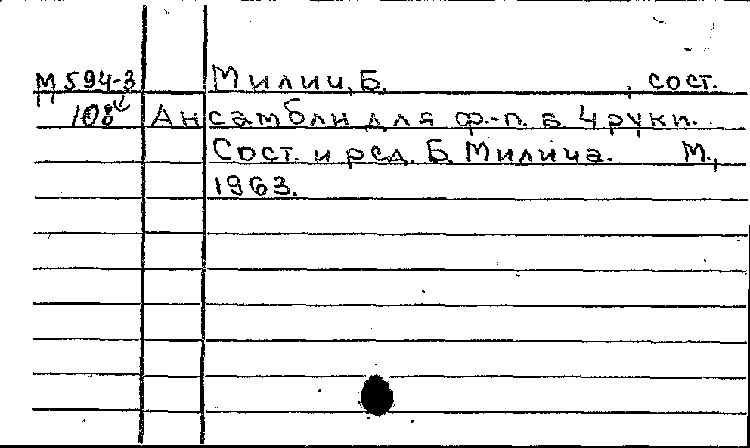 М594-3 Милич, Б. , сост.
108 Ансамбли для ф.-п. в 4 руки.
Сост. и ред. Б. Милича. М.,
1963.